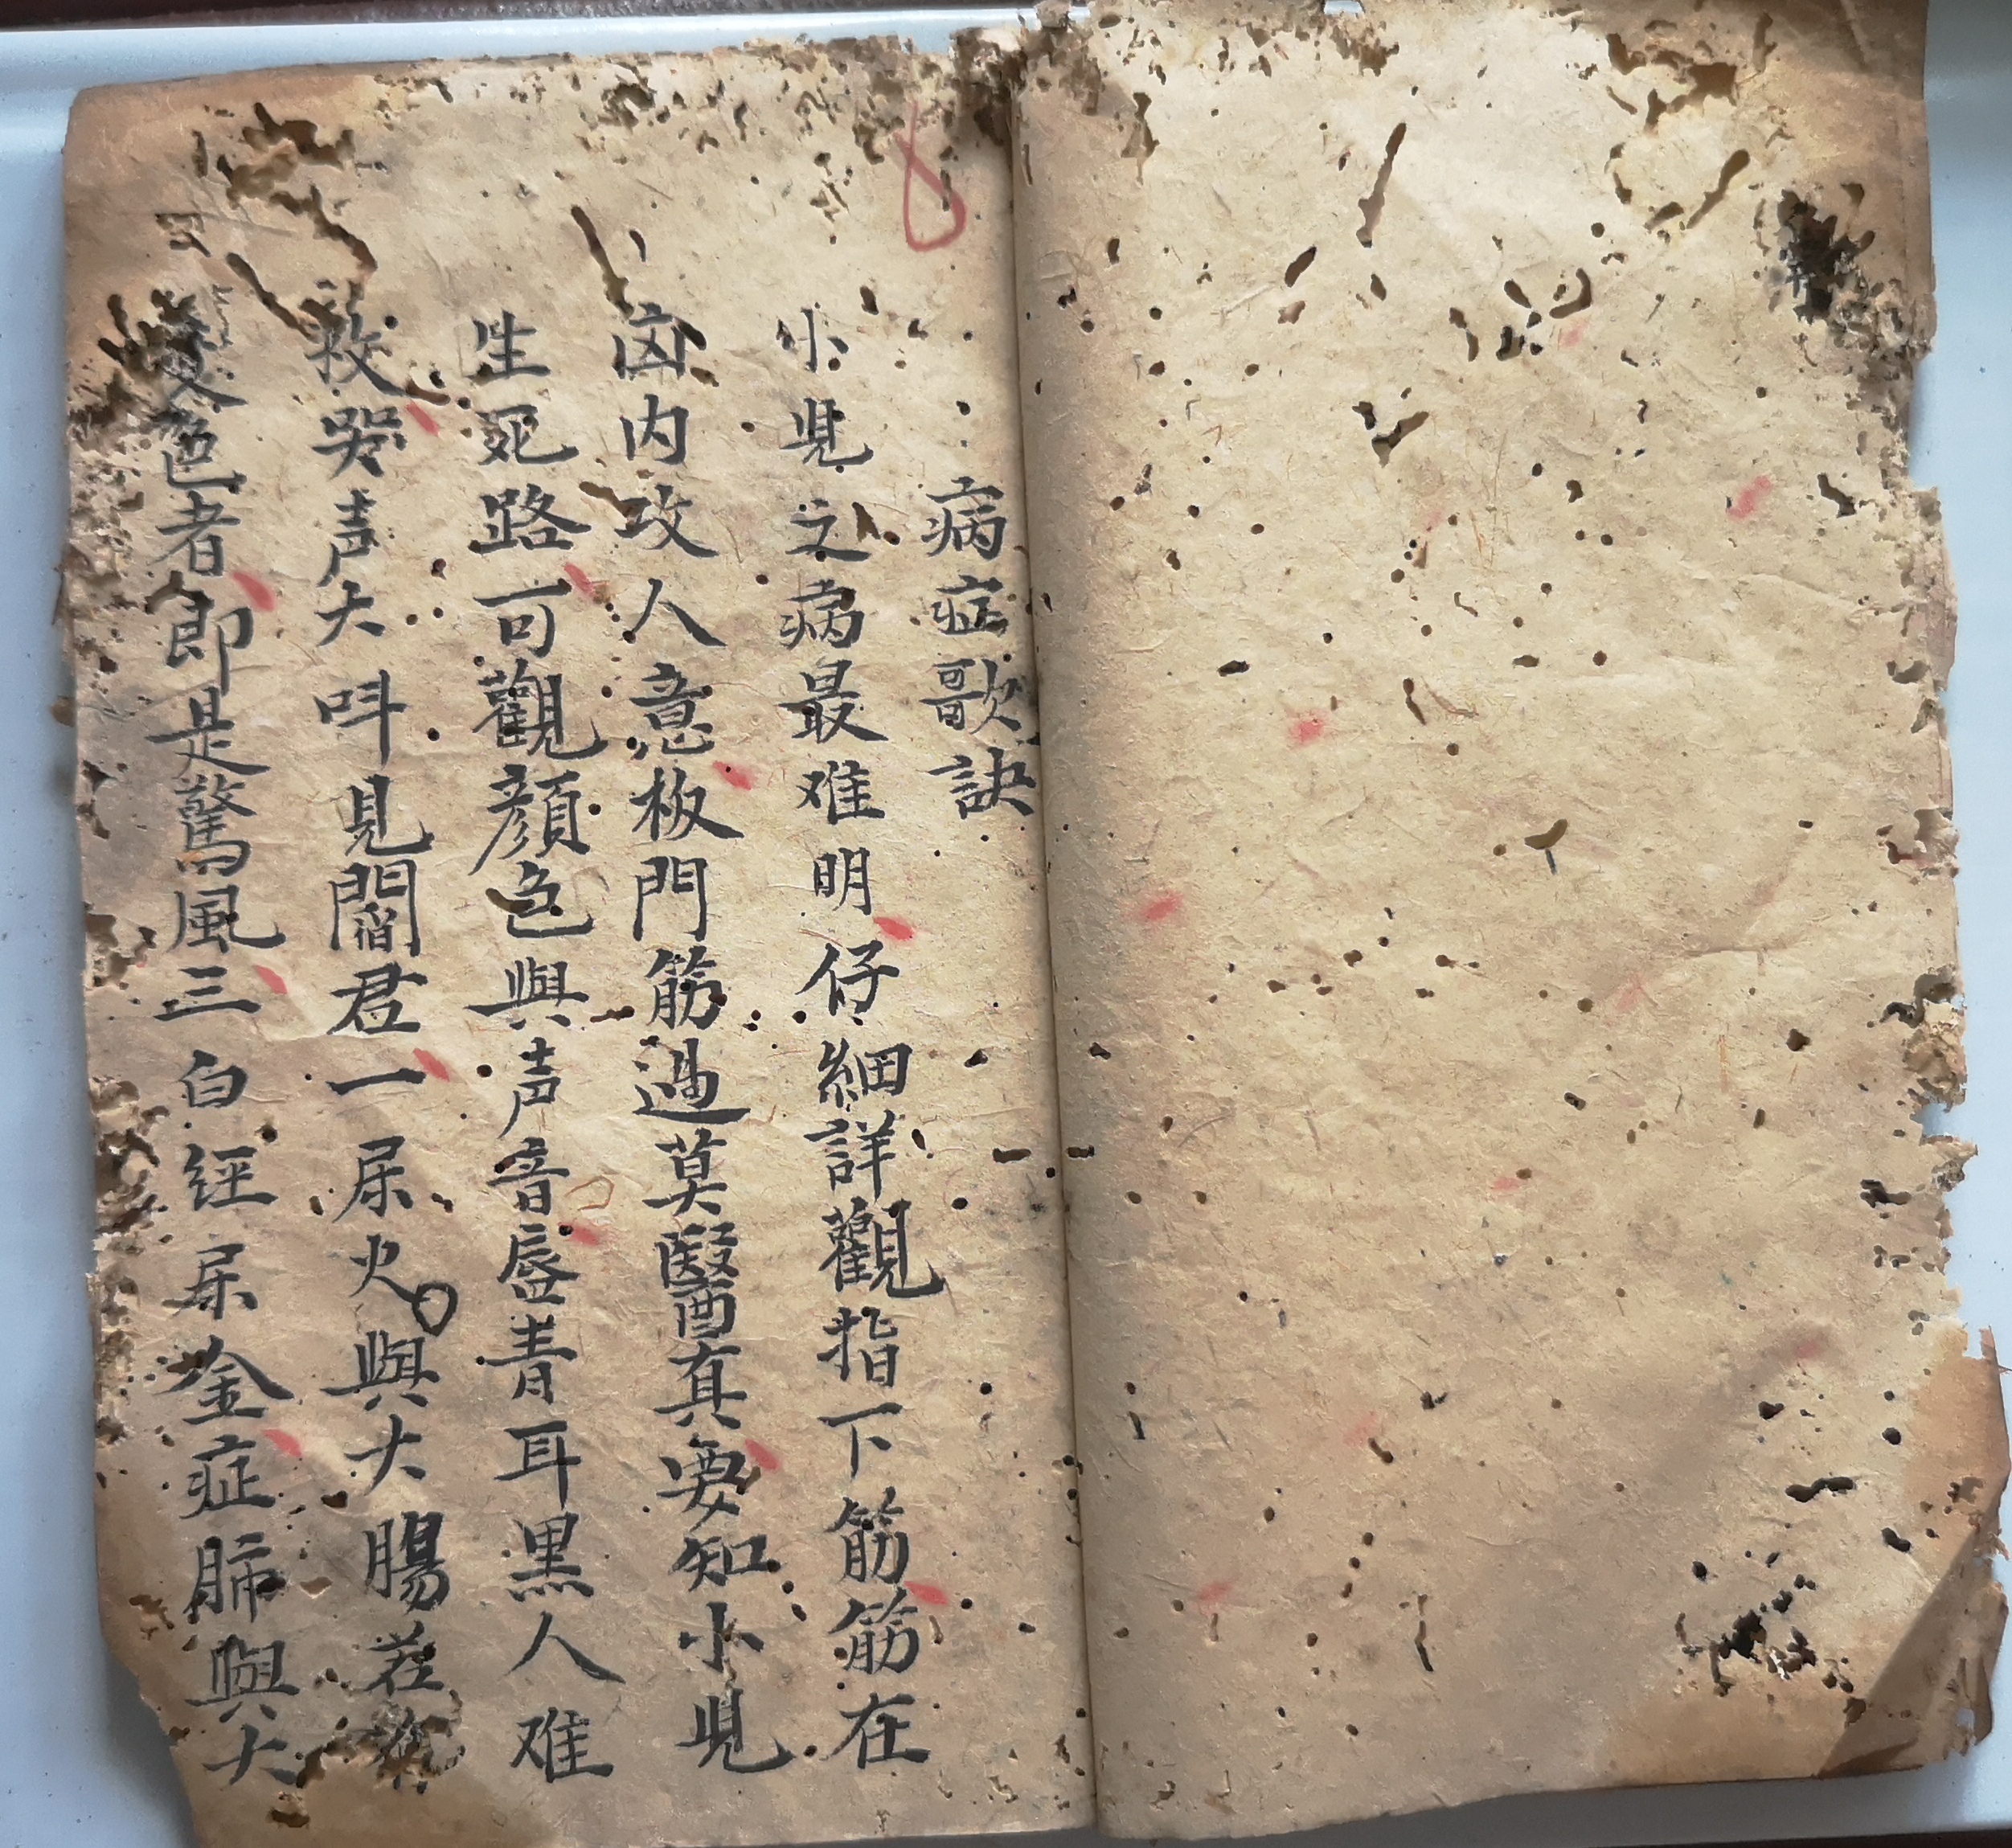 病症歌訣
小児之病最难明仔細詳觀指下筋筋在
内攻人意板門筋過莫醫真要知小児
生死路可觀顔色與声音唇青耳黑人难
救哭声大呌見閻君一尿火與大腸若
変色者即是驚風三白經尿金症肺與大